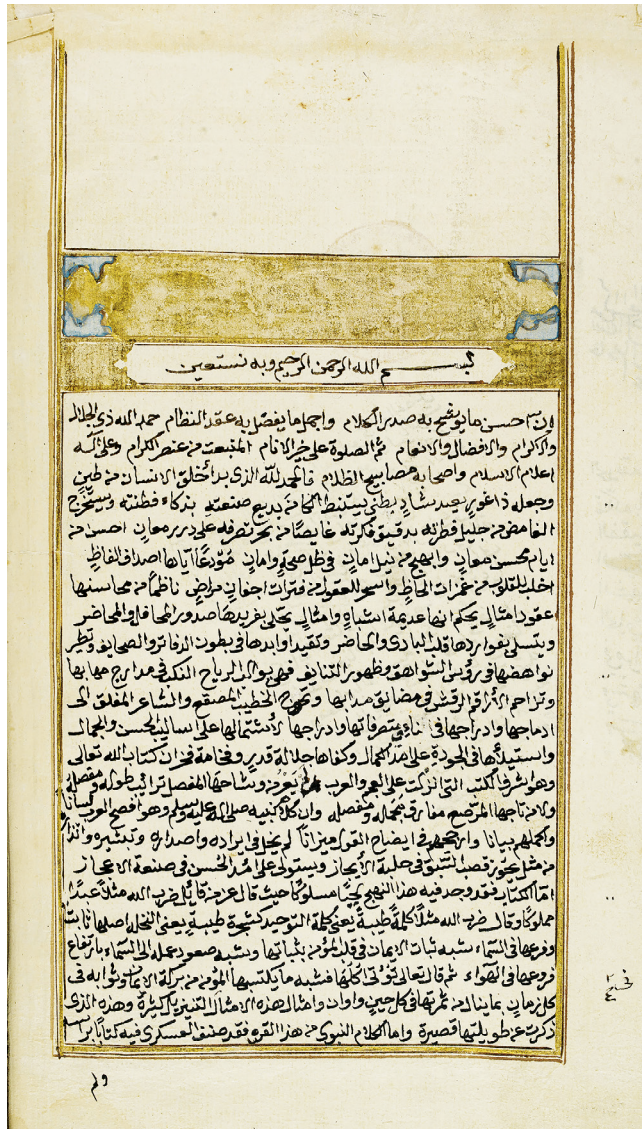 بسم الله الرحمن الرحيم وبه نستعين
إن احسن ما يوشح به صدر الكلام واجمل ما يفصل به عقد النظام حمد الله ذي الجلال
والاكرام والافضال والانعام ثم الصلوة على خير الانام المنبعث من عنصر الكرام وعلى آله
اعلام الاسلام واصحابه مصابيح الظلام فالحمد لله الذي بدأ خلق الانسان من طين
وجعله ذا غور بعيد وشأو بطين يستنبط الكامن من بديع صنعته بذكاء فطنته ويستخرج
الغامض من جليل فطرته بدقيق فكرته غايصًا من بحر تصرفه على درر معان احسن من
ايام محسن معان وابهج من نيل امان في ظل صحة وامان مودعًا اياها اصداف الفاظ
اخلب للقلوب من غمزات الحاظ واسحر للعقول من فترات اجفان مراض ناظمًا من محاسنها
عقود امثال يحكم انها عديمة اشباه وامثال يتحلى بفريدها صدور المحافل والمحاضر
ويتسلى بفواردها قلب البادى والحاضر وتقيد اوابدها في بطون الدفاتر والصحايف وتطير
نواهضها في رؤس الشواهق وظهور التنايف فهي تواكب الرياح النكب في مدارج مهابها
وتزاحم الأراقم الرقش في مضايق مدابها وتحوج الخطيب المصقع والشاعر المفلق الى
ادماجها وادراجها في اثناء متصرفاتها وادراجها لاشتمالها على اساليب الحسن والجمال
واستيلائها في الجودة على امد الكمال وكفاها جلالة قدر وفخامة فخر ان كتاب الله تعالى
وهو اشرف الكتب التي انزلت على العجم والعرب لم يعر من وشاحها المفصل ترائب طوله ومفصله
ولا من تاجها المرصع مفارق مجمله ومفصله وان كلام نبيه صلى الله عليه وسلم وهو افصح العرب لسانا
واكملهم بيانا وارجحهم في ايضاح القول ميزانًا لم يخل في ايراده واصداره وتبشيره وانذاره
من مثل يحوز قصب السبق في حلبة الايجاز ويستولي على امد الحسن في صنعة الاعجاز
اما الكتاب فقد وجد فيه هذا النهج لحبًا مسلوكًا حيث قال عز من قائل ضرب الله مثلا عبدًا
مملوكًا وقال ضرب الله مثلا كلمة طيبة يعني كلمة التوحيد كشجرة طيبة يعني النخلة اصلها ثابت
وفرعها في السماء شبه ثبات الايمان في قلب المؤمن بثباتها وشبه صعود عمله الى السماء بارتفاع
فروعها في الهواء ثم قال تعالى تؤتى اكلها فشبه ما يكتسبها المؤمن من بركة الايمان وثوابه في
كل زمان بما ينال من ثمرتها في كل حين واوان وامثال هذه الامثال في التنزيل كثيرة وهذه الذى
ذكرت عن طويلتها قصيرة واما الكلام النبوي من هذا الفن فقد صنف العسكرى فيه كتابًا براسه
ولم